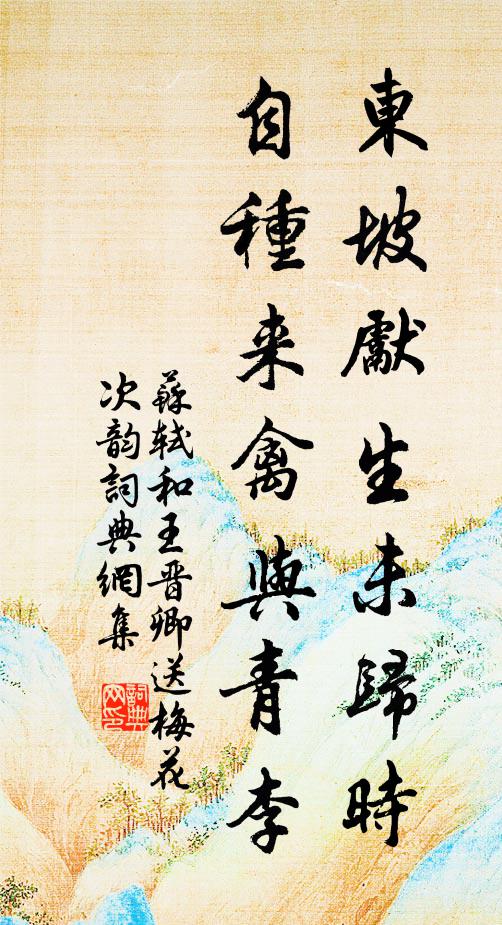 東坡獻生未歸時
自種来禽與青李
蘇軾和王晋卿送梅花
次韵詞典網集
詞典
网印